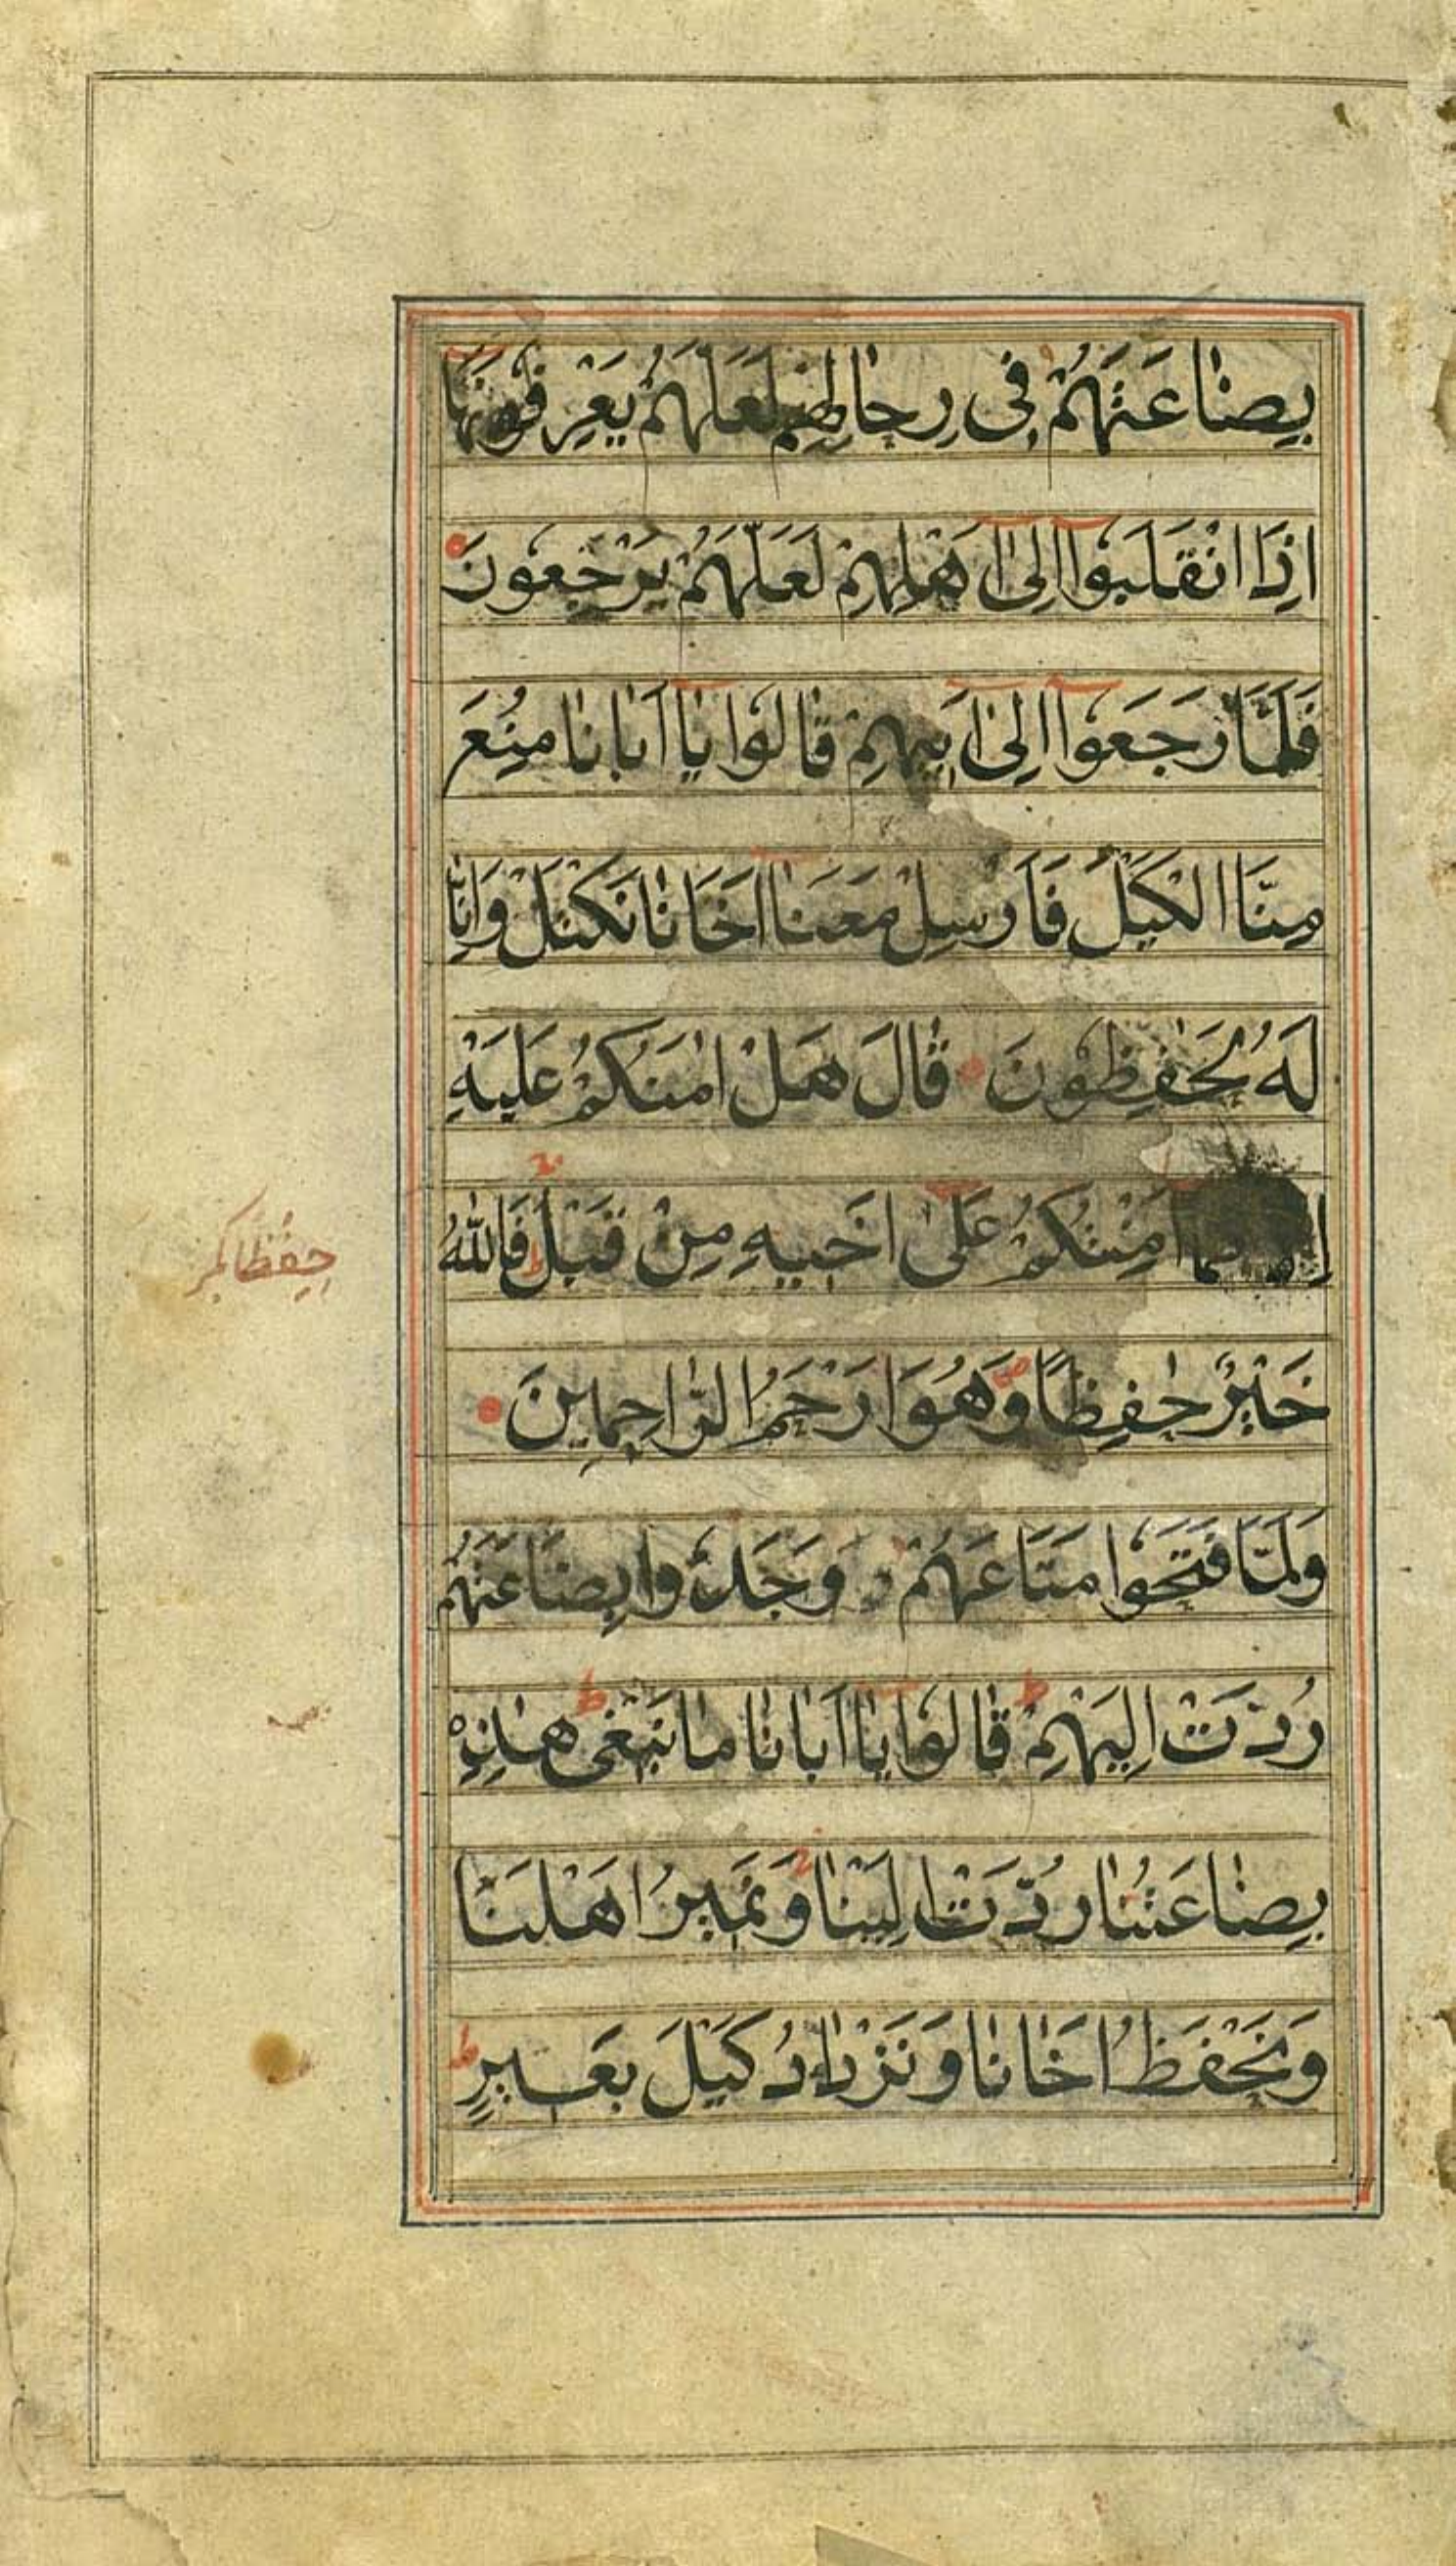 بِضَاعَتَهُمْ فِى رِحَالِهِمْ لَعَلَّهُمْ يَعْرِفُونَهَا
اِذَا انْقَلَبُوا اِلٰى اَهْلِهِمْ لَعَلَّهُمْ يَرْجِعُونَ
فَلَمَّا رَجَعُوا اِلٰى اَبِيهِمْ قَالُوا يَا اَبَانَا مُنِعَ
مِنَّا الْكَيْلُ فَاَرْسِلْ مَعَنَا اَخَانَا نَكْتَلْ وَاِنَّا
لَهُ لَحٰفِظُونَ قَالَ هَلْ اٰمَنُكُمْ عَلَيْهِ
كَمَا اَمِنْتُكُمْ عَلٰى اَخِيهِ مِنْ قَبْلُ فَاللّٰهُ
خَيْرٌ حٰفِظًا وَهُوَ اَرْحَمُ الرَّاحِمِينَ
وَلَمَّا فَتَحُوا مَتَاعَهُمْ وَجَدُوا بِضَاعَتَهُمْ
رُدَّتْ اِلَيْهِمْ قَالُوا يَا اَبَانَا مَا نَبْغِى هٰذِهِ
بِضَاعَتُنَا رُدَّتْ اِلَيْنَا وَنَمِيرُ اَهْلَنَا
وَنَحْفَظُ اَخَانَا وَنَزْدَادُ كَيْلَ بَعِيرٍ